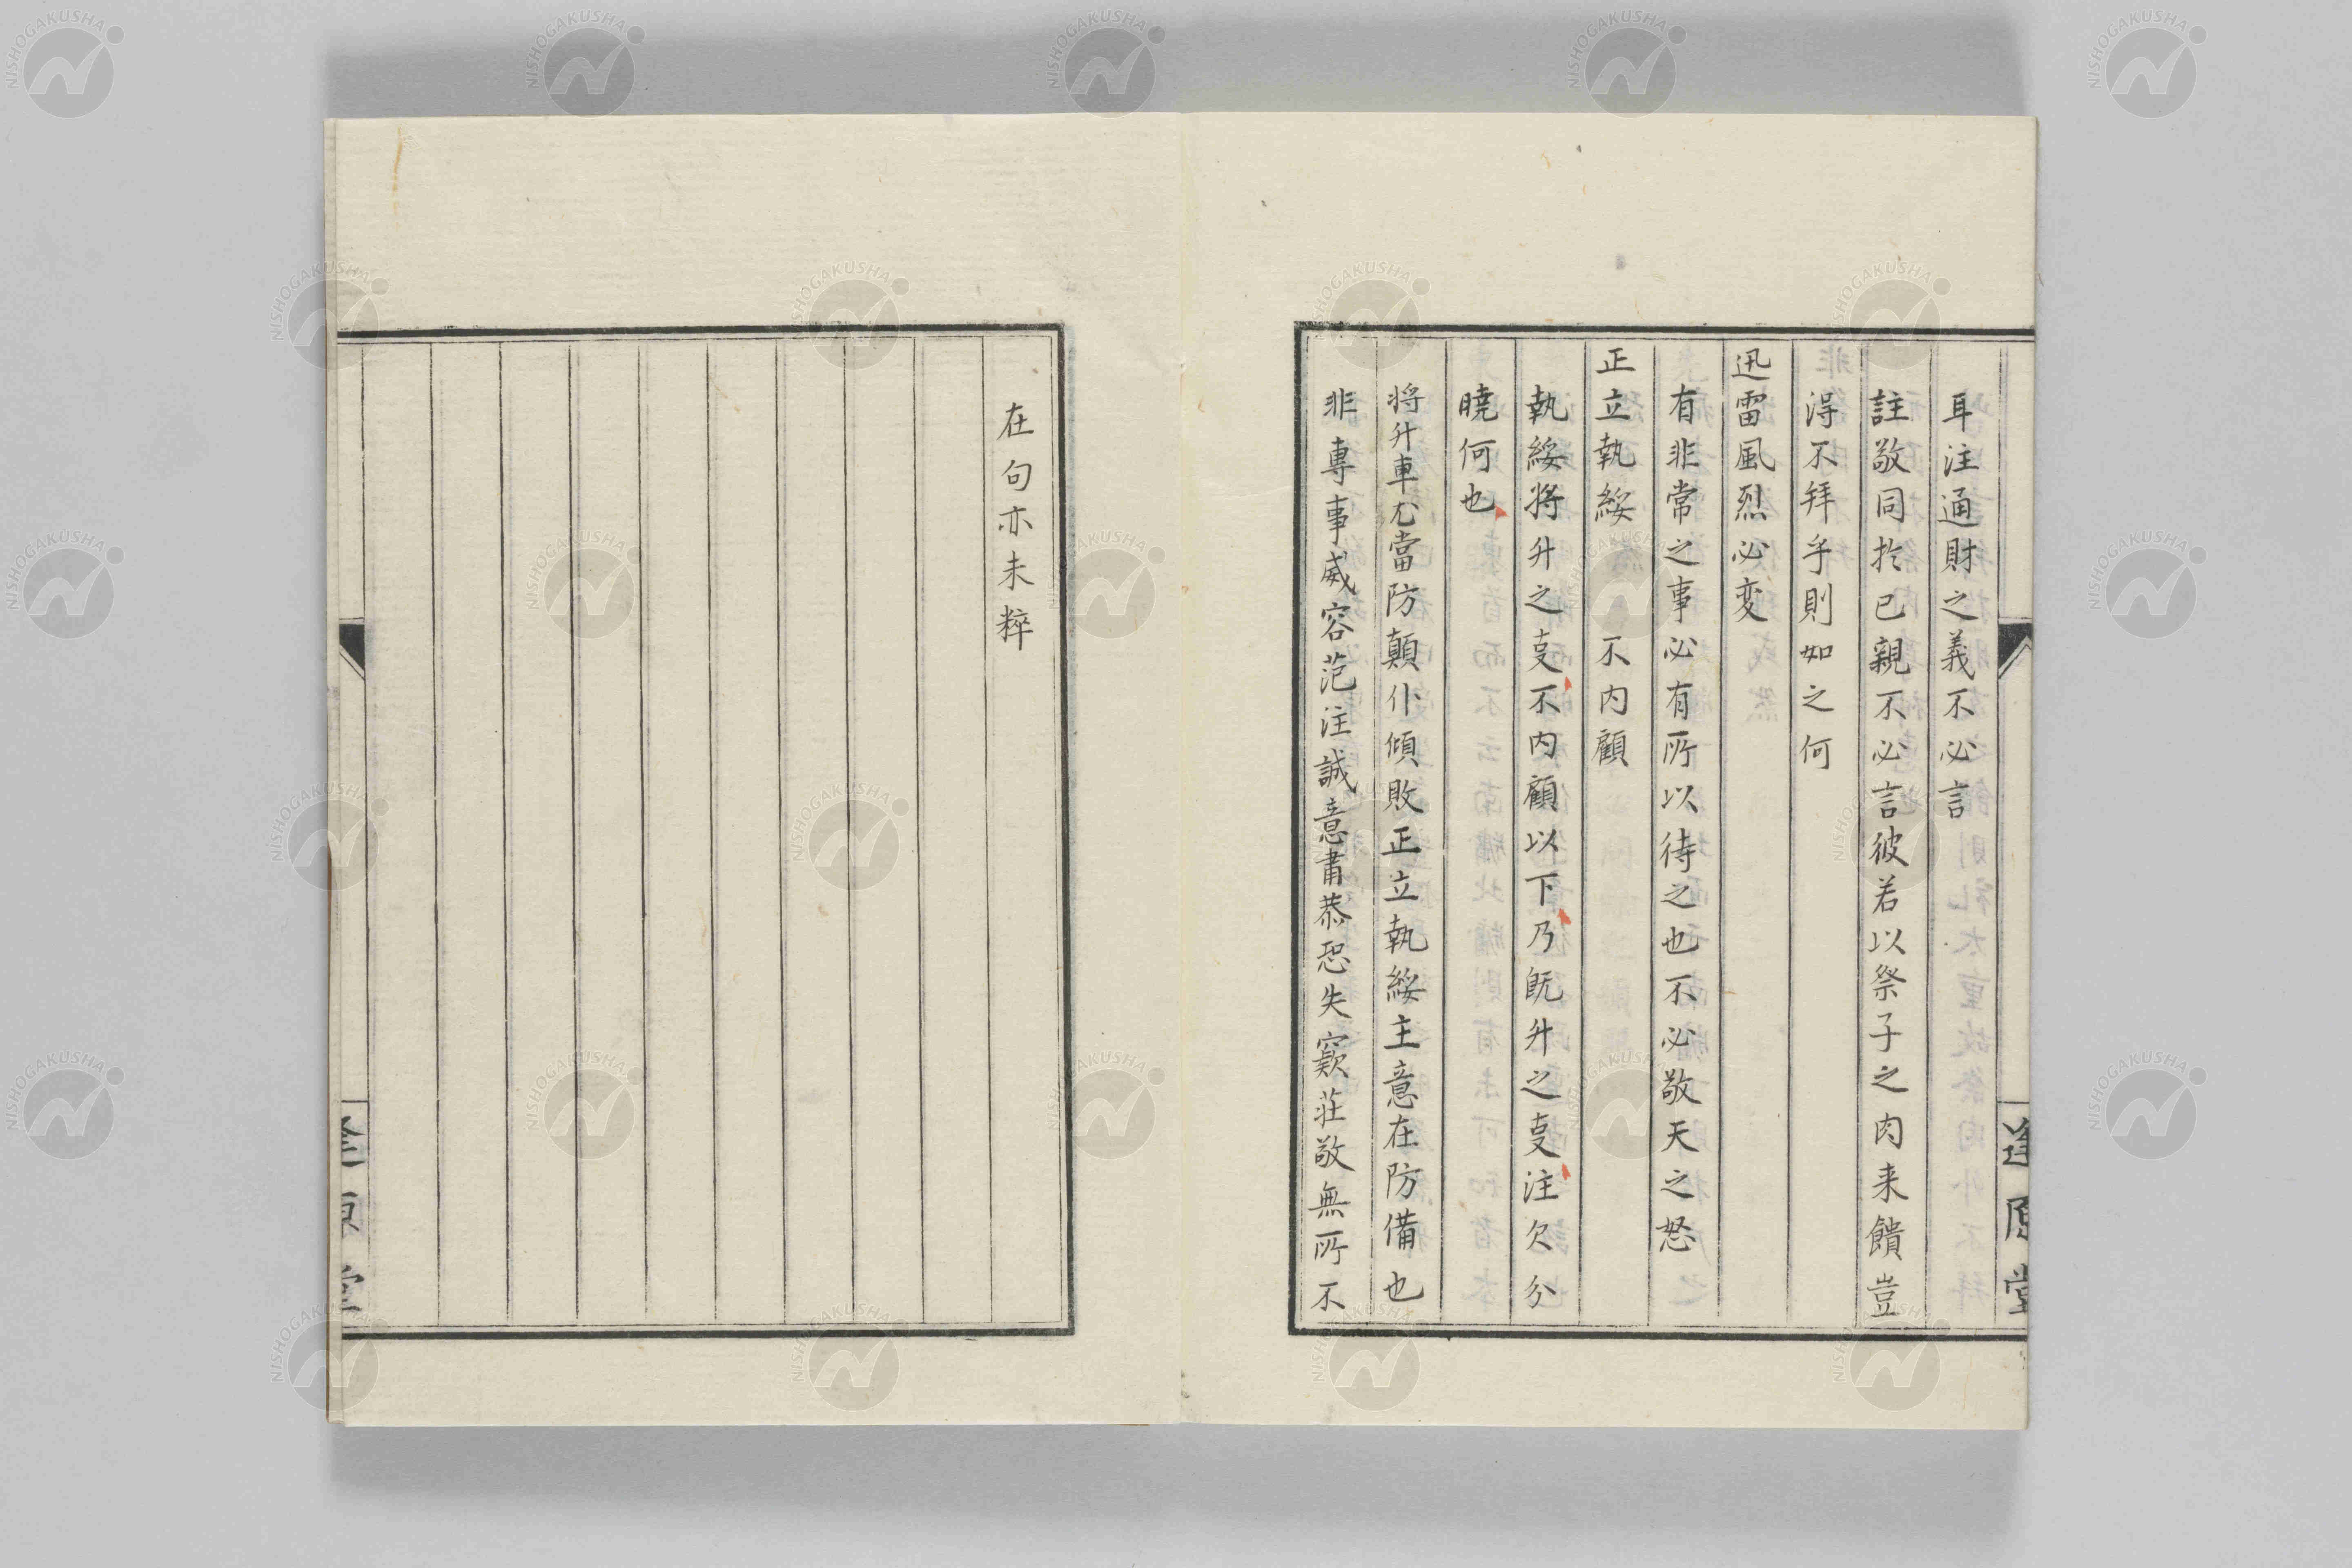 耳注通財之義不必言
註敬同於已親不必言彼若以祭子之肉来饋豈
淂不拜乎則如之何
迅雷風烈必变
有非常之事必有所以待之也不必敬天之怒
正立執綏 不内顧
執綏将升之叓不内顧以下乃既升之叓注欠分
曉何也
将升車尤當防顛仆傾敗正立執綏主意在防備也
非專事威容范注誠意肅恭恐失窾莊敬無所不
在句亦未粹
逢原堂